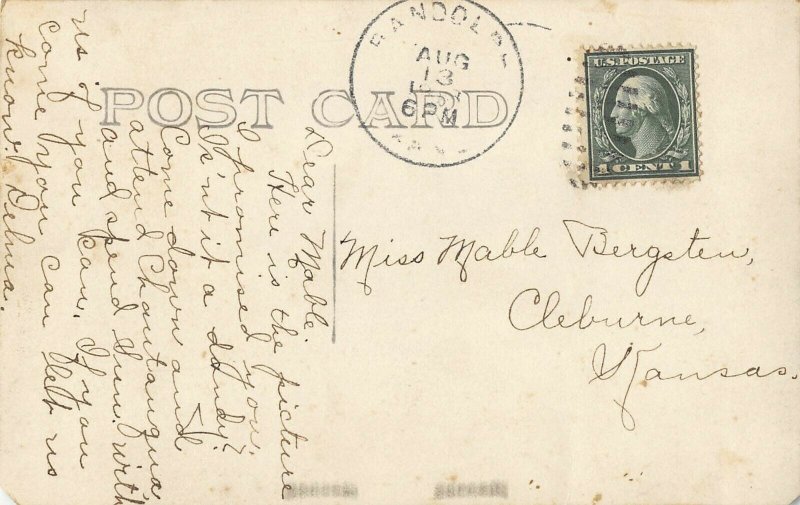 POST CARD
RANDOLPH
AUG
13
6 PM
KAN.
U.S. POSTAGE
1 CENT 1
Miss Mable Bergsten,
Cleburne,
Kansas.
Dear Mable.
Here is the picture
I promised you.
Is'nt it a dandy?
Come down and
attend Chautauqua
and spend Sun. with
us if you kan. If you
come you can let us
know. Delma.